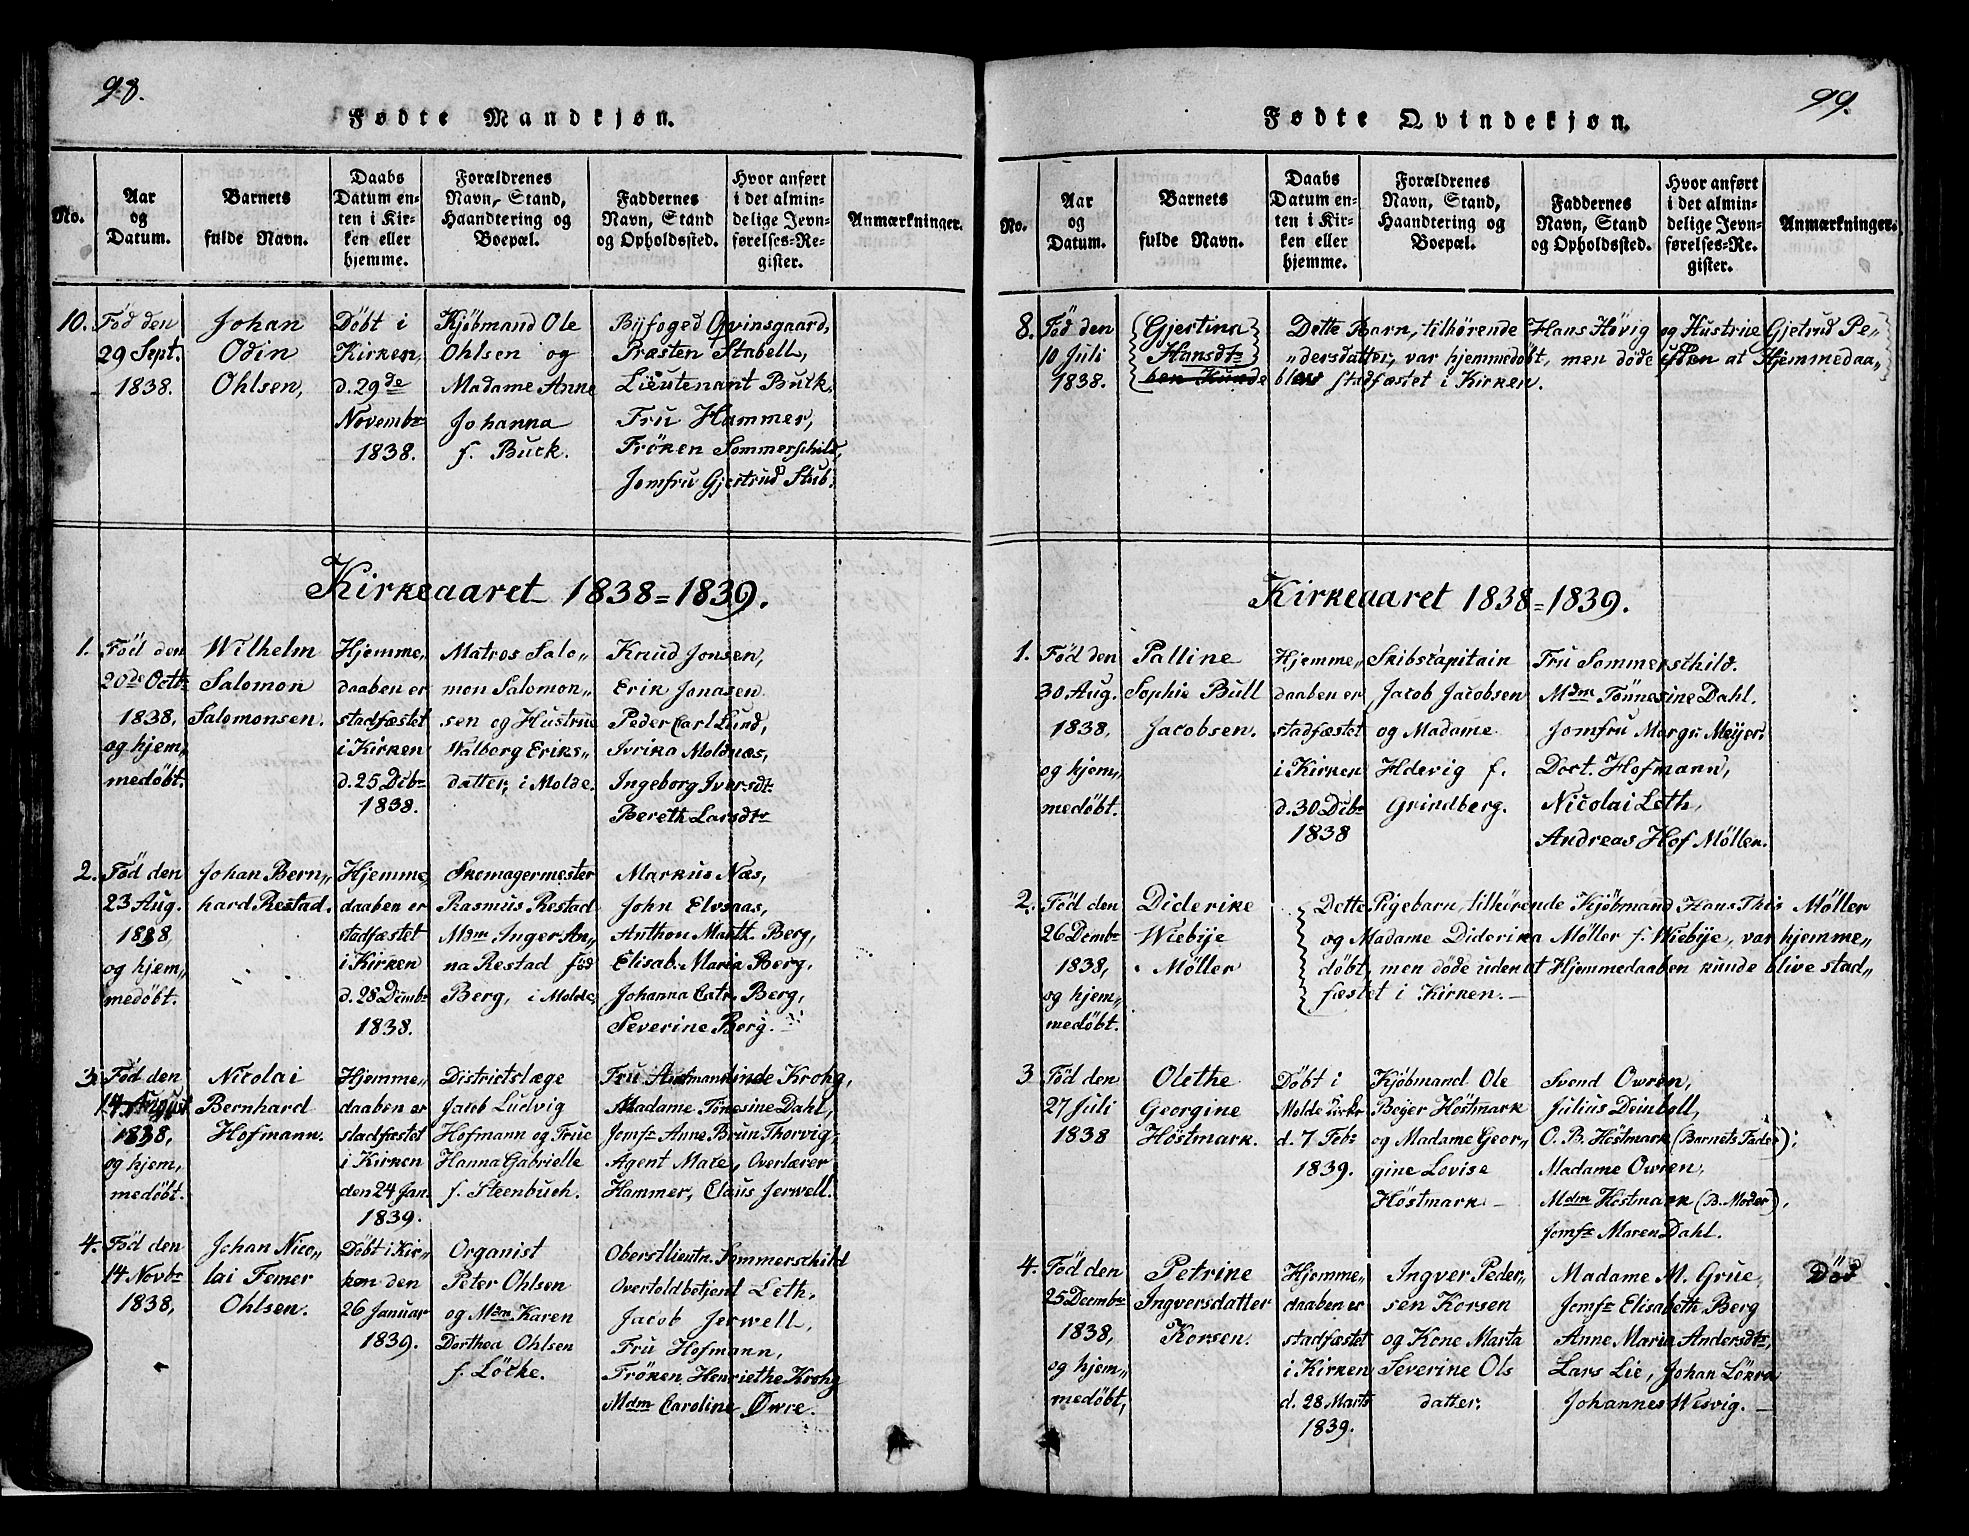 98.
Fødte Mandkjøn.
No.
Aar
og
Datum.
Barnets
fulde Navn.
Daabs
Datum en-
ten i Kir-
ken eller
hjemme.
Forældrenes
Navn, Stand,
Haandtering og
Boepæl.
Faddernes
Navn, Stand
og Opholdssted.
Hvor anført
i det almin-
delige Jevn-
førelses-Re-
gister.
Anmærkninger.
10.
Föd den
29 Sept.
1838.
Johan
Odin
Ohlsen,
Döbt i
Kirken,
d. 29de
Novembr
1838.
Kjöbmand Ole
Ohlsen og
Madame Anne
Johanna
f. Buck.
Byfoged Qvinsgaard,
Præsten Stabell,
Lieutenant Buck,
Fru Hammer,
Fröken Sommerschild,
Jomfru Gjertrud Stub.
Kirkeaaret 1838=1839.
1.
Föd den
20de Octbr
1838,
og hjem„
medøbt.
Wilhelm
Salomon
Salomonsen.
Hjemme„
daaben er
stadfæstet
i Kirken
d. 25 Dcbr
1838.
Matros Salo„
mon Salomon„
sen og Hustrue
Valborg Eriks„
datter, i Molde.
Knud Jonsen,
Erik Jonasen.
Peder Carl Lund,
Ivrika Moldnæs,
Ingeborg Iversdt:
Bereth Larsdtr
2.
Föd den
23 Aug.
1838,
og hjem„
medøbt.
Johan Bern„
hard Restad.
Hjemme„
daaben er
stadfæstet
i Kirken
d. 28 Dcmbr
1838.
Skomagermester
Rasmus Restad
Mdm Inger An„
na Restad föd
Berg, i Molde,
Markus Næs,
John Elvsaas,
Anthon Marth. Berg,
Elisab. Maria Berg,
Johanna Catr. Berg,
Severine Berg.
3.
Föd den
14 August
1838,
og hjem„
medøbt.
Nicolai
Bernhard
Hofmann.
Hjemme„
daaben er
stadfæstet
i Kirken
den 24 Jan.
1839.
Districtslæge
Jacob Ludvig
Hofmann og Frue
Hanna Gabrielle
f. Steenbuch.
Fru Amtmandinde Krohg,
Madame Tönesine Dahl,
Jomfr Anne Brun Thorvig,
Agent Møre, Overlærer
Hammer, Claus Jerwell.
4.
Föd den
14 Novbr
1838,
Johan Nico„
lai Femer
Ohlsen.
Döbt i Kir„
ken den
26 Januar
1839.
Organist
Peter Ohlsen
og Mdm Karen
Dorthea Ohlsen
f. Löcke.
Oberstlieutn. Sommerschild
Overtoldbetjent Leth,
Jacob Jerwell,
Fru Hofmann,
Fröken Henriethe Krohg
Mdm Caroline Øwre.
99.
Fødte Qvindekjøn.
No.
Aar
og
Datum.
Barnets
fulde Navn.
Daabs
Datum en-
ten i Kir-
ken eller
hjemme.
Forældrenes
Navn, Stand,
Haandtering og
Boepæl.
Faddernes
Navn, Stand
og Opholdssted.
Hvor anført
i det almin-
delige Jevn-
førelses-Re-
gister.
Anmærkninger.
8.
Föd den
10 Juli
1838.
Gjertina
Hansdtr
Dette Barn, tilhörende Hans Hövig og Hustrue Gjetrud Pe„
„dersdatter, var hjemmedøbt, men döde uden at Hjemmedaa„
ben kunde blev stadfæstet i Kirken.
Kirkeaaret 1838=1839.
1.
Föd den
30 Aug.
1838,
og hjem„
medøbt.
Palline
Sophie Bull
Jacobsen.
Hjemme„
daaben er
stadfæstet
i Kirken
d. 30 Dcbr
1838
Skibscapitain
Jacob Jacobsen
og Madame
Hdevig f.
Grindberg.
Fru Sommerschild.
Mdm Tönnesine Dahl.
Jomfru Margr. Meyer.
Dort. Hofmann,
Nicolai Leth,
Andreas Hof Möller.
2.
Föd den
26 Dcmbr
1838,
og hjem„
medøbt.
Diderike
Wiebye
Möller
Dette Pigebarn, tilhörende Kjöbmand Hans Thiis Möller
og Madame Diderika Möller f. Wiebye, var hjemme„
döbt, men döde uden at Hjemmedaaben kunde blive stad„
fæstet i Kirken.
3
Föd den
27 Juli
1838
Olethe
Georgine
Höstmark.
Döbt i
Molde Kirke
d. 7 Febr
1839.
Kjöbmand Ole
Beyer Höstmark
og Madame Geor„
gine Lovise
Höstmark
Svend Owren,
Julius Deinboll,
O. B. Höstmark (Barnets Fader);
Madame Owren,
Mdm Höstmark (B. Moder),
Jomfr Maren Dahl.
4.
Föd den
25 Decmbr
1838,
og hjem„
medøbt,
Petrine
Ingversdatter
Korsen.
Hjemme„
daaben er
stadfæstet
i Kirken
d. 28 Marts
1839.
Ingver Peder„
sen Korsen
og Kone Marta
Severine Ols
datter.
Madame M. Grue,
Jomfr Elisabeth Berg
Anne Maria Andersdtr,
Lars Lie, Johan Lökra
Johannes Wesvig.
Död